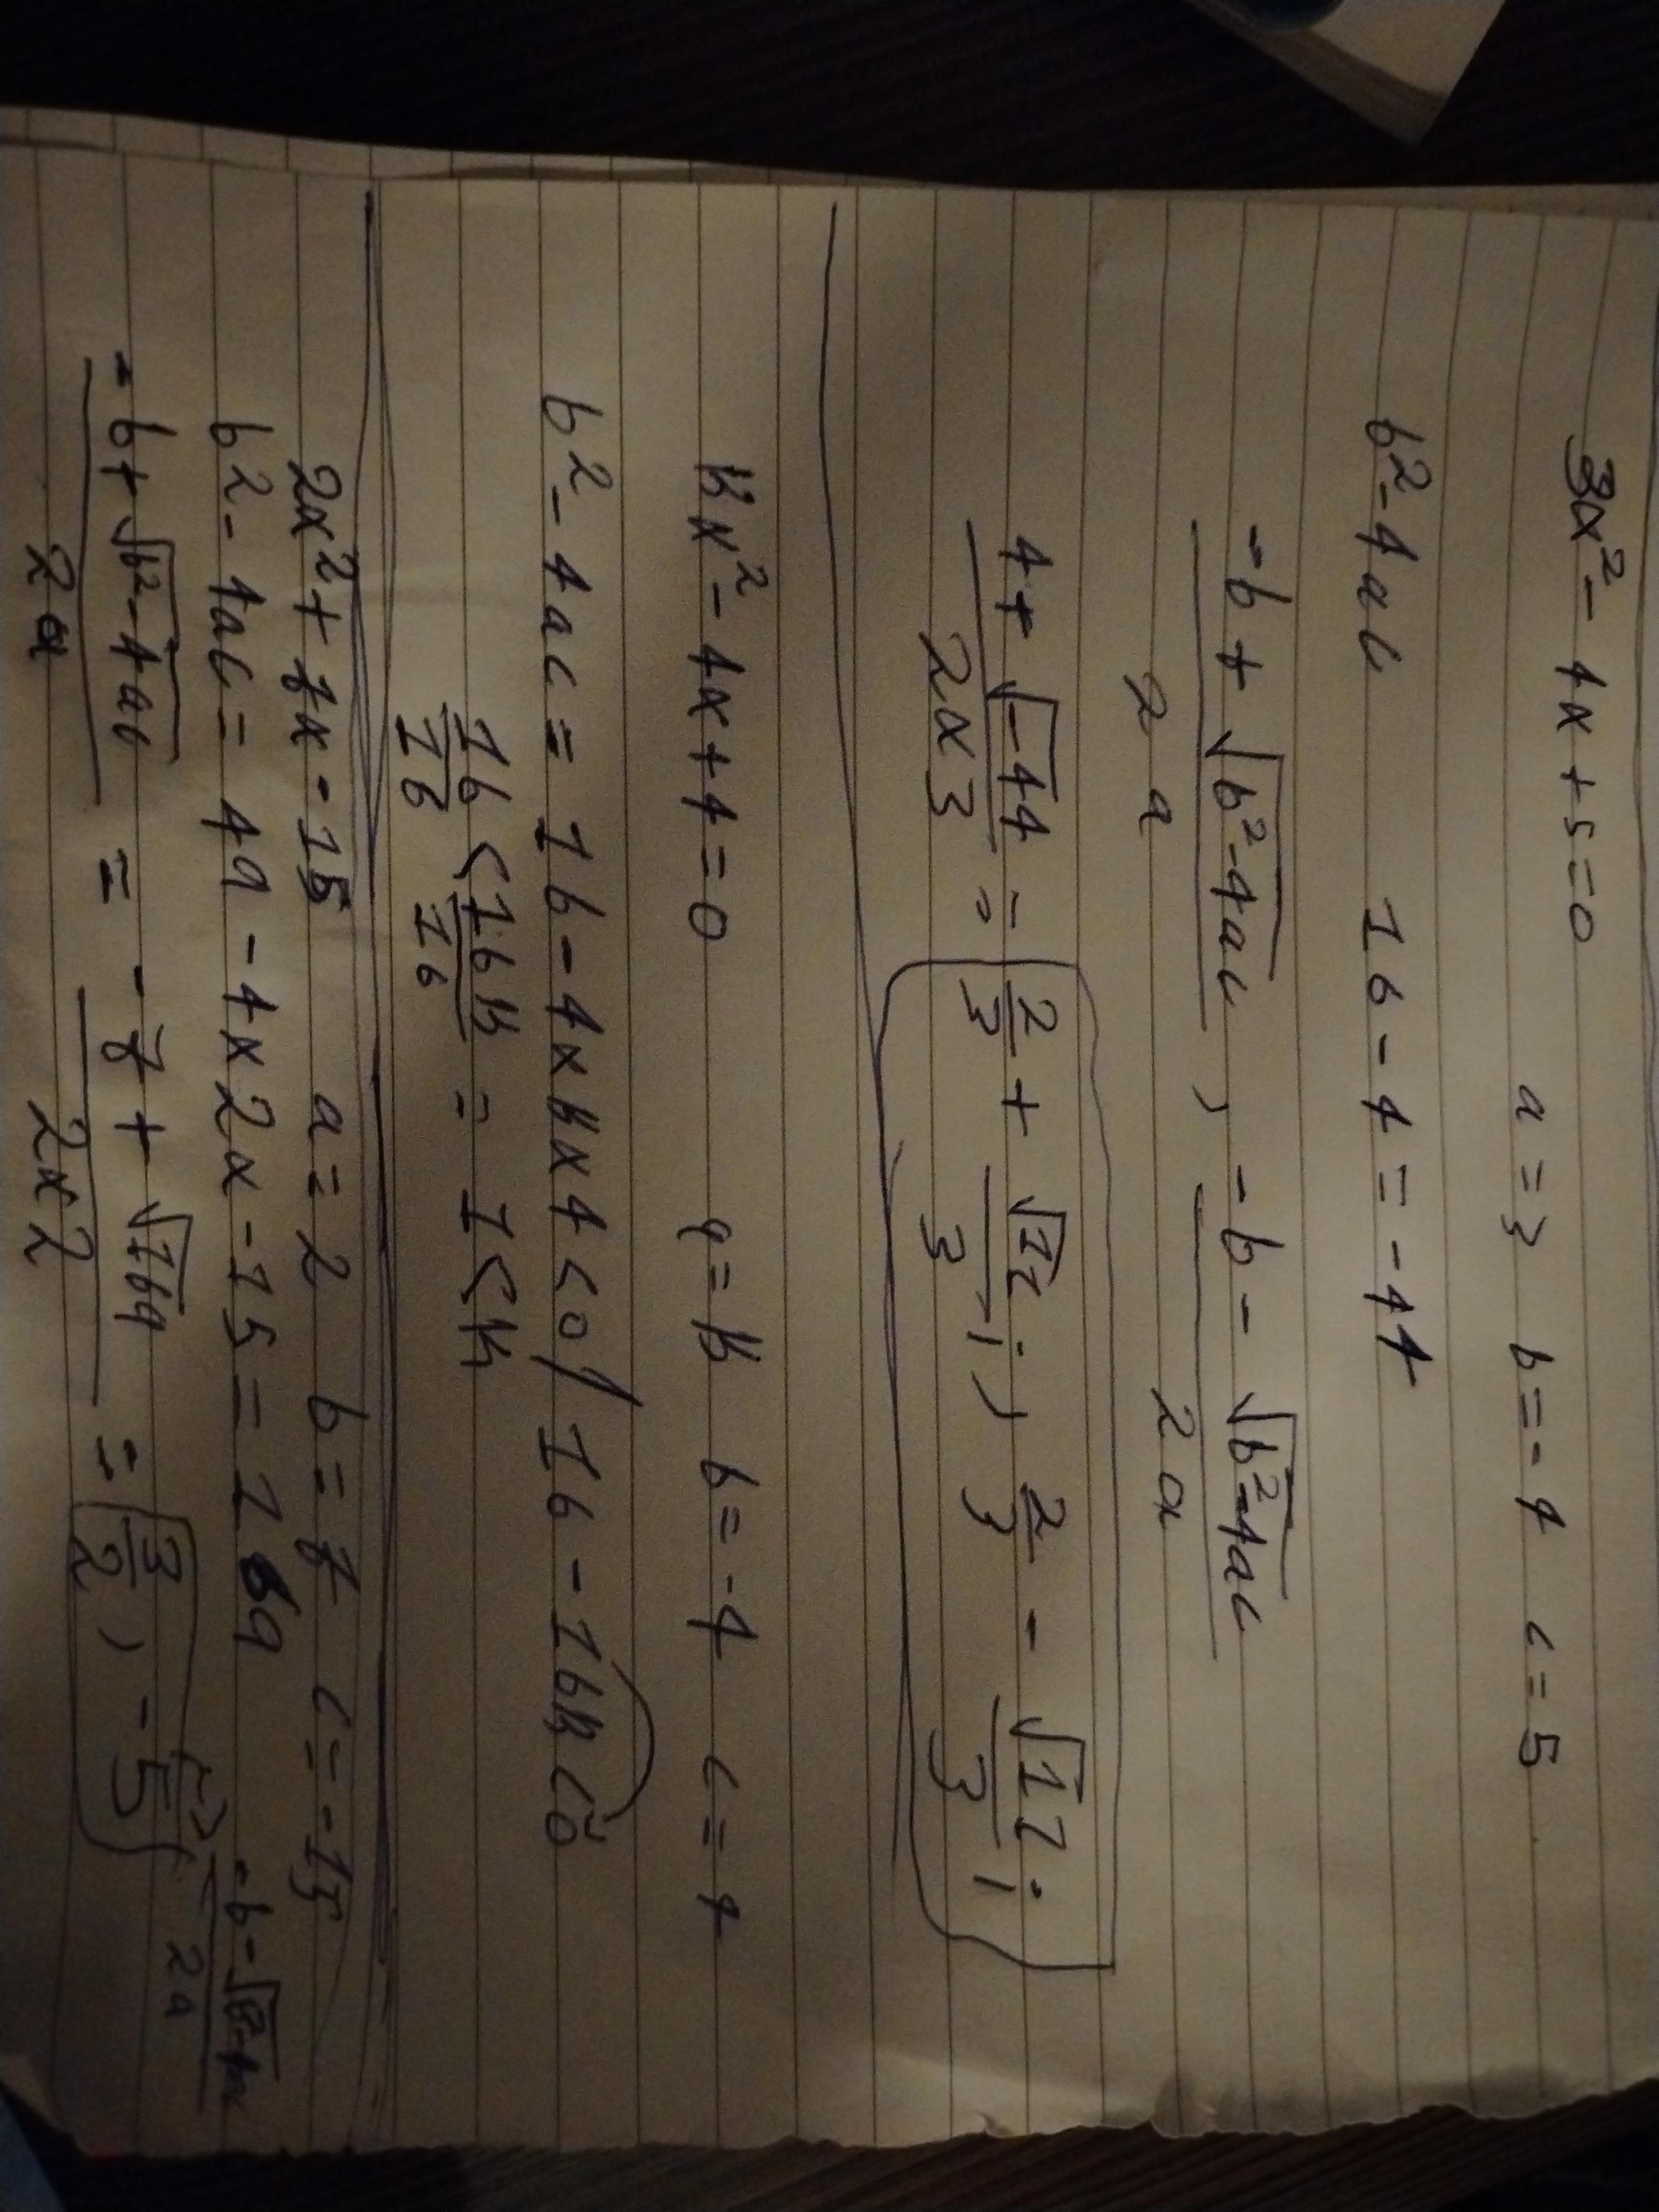 3x² - 4x + 5 = 0 a = 3 b = -4 c = 5
b² - 4ac 16 - 4 = -44
(-b + √(b² - 4ac))/(2a) , (-b - √(b² - 4ac))/(2a)
(4 + √-44)/(2x3) = 2/3 + (√11)/3 i , 2/3 - (√11)/3 i
kx² - 4x + 4 = 0 a = k b = -4 c = 4
b² - 4ac = 16 - 4xkx4 < 0 / 16 - 16k < 0
16/16 < 16k/16 = 1 < k
2x² + 7x - 15 a = 2 b = 7 c = -15
b² - 4ac = 49 - 4x2x-15 = 169
(-b + √(b² - 4ac))/(2a) = (-7 + √169)/(2x2) = 3/2 , -5